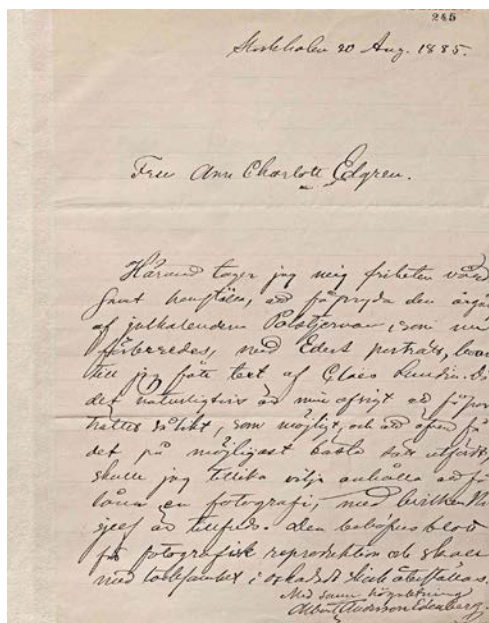 245
Stockholm 20 Aug. 1885.
Fru Ann Charlott Edgren.
Härmed tager jag mig friheten vörd
samt hemställa, att få pryda den årgå
af julkalendern Polstjernan, som nu
förberedes, med Edert porträtt, hvar
till jag fått text af Claës Lundin. Då
det naturligtvis är min afsigt att få por
trättet så likt, som möjligt, och att äfven få
det på möjligast bästa sätt utfördt,
skulle jag tillika vilja anhålla att få
låna en fotografi, med hvilken Ni
sjelf är tillfreds. Den behöfves blott
för fotografisk reproduktion och skall
med tacksamhet i oskadadt skick återställas.
Med sann högaktning
Albert Andersson Edenberg.